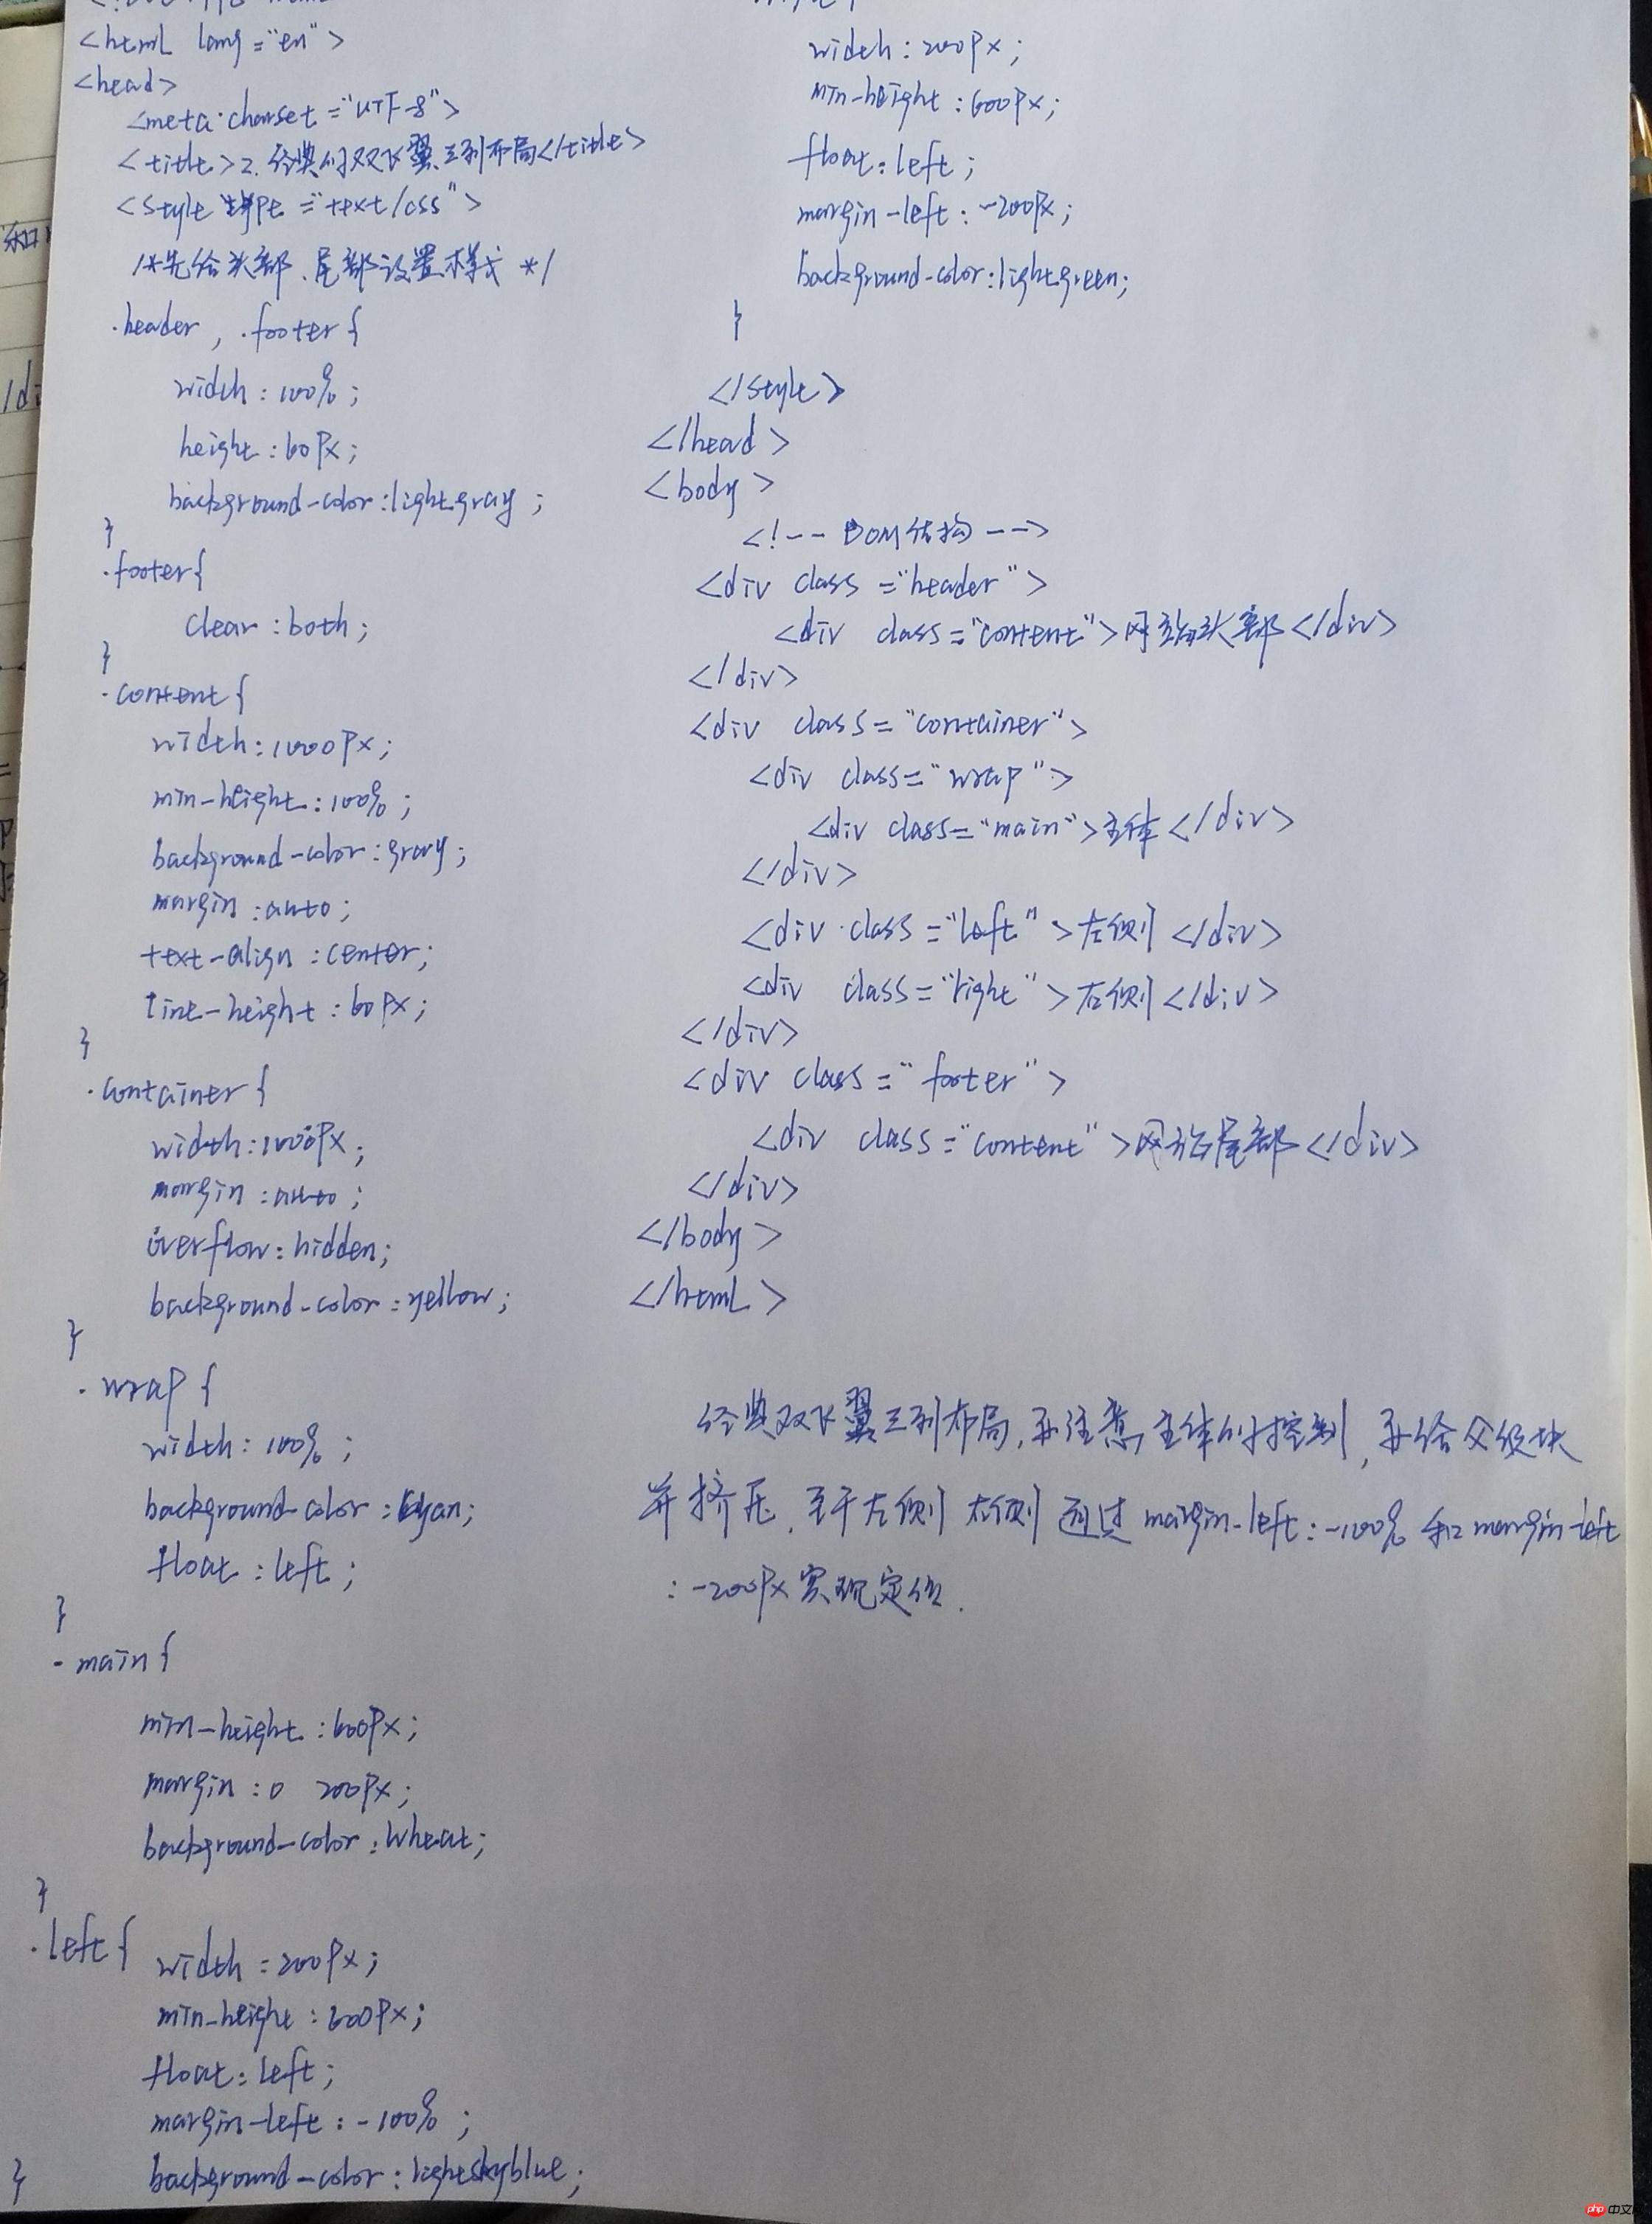 <html lang="en">
<head>
<meta charset="UTF-8">
<title>2.经典的双飞翼三列布局</title>
<style type="text/css">
/*先给头部、尾部设置样式 */
.header, .footer{
width:100%;
height:60px;
background-color:lightgray;
}
.footer{
clear:both;
}
.content{
width:1000px;
min-height:100%;
background-color:gray;
margin:auto;
text-align:center;
line-height:60px;
}
.container{
width:1000px;
margin:auto;
overflow:hidden;
background-color:yellow;
}
.wrap{
width:100%;
background-color:cyan;
float:left;
}
.main{
min-height:600px;
margin:0 200px;
background-color:wheat;
}
.left{ width:200px;
min-height:600px;
float:left;
margin-left:-100%;
background-color:lightskyblue;
}
width:200px;
min-height:600px;
float:left;
margin-left:-200px;
background-color:lightgreen;
}
</style>
</head>
<body>
<!-- DOM结构 -->
<div class="header">
<div class="content">网站头部</div>
</div>
<div class="container">
<div class="wrap">
<div class="main">主体</div>
</div>
<div class="left">左侧</div>
<div class="right">右侧</div>
</div>
<div class="footer">
<div class="content">网站尾部</div>
</div>
</body>
</html>
经典双飞翼三列布局,要注意主体的控制,要给父级块
并挤压,至于左侧 右侧 通过 margin-left:-100% 和 margin-left
:-200px实现定位.
php 中文